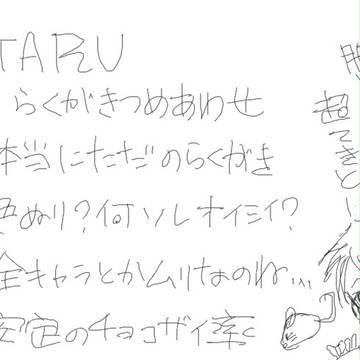 TARU
らくがきつめあわせ
本当にただのらくがき
ぬり?何ソレオイシイ?
全キャラとかムリなのね...
安定のチョコザイ率
超てきとーに